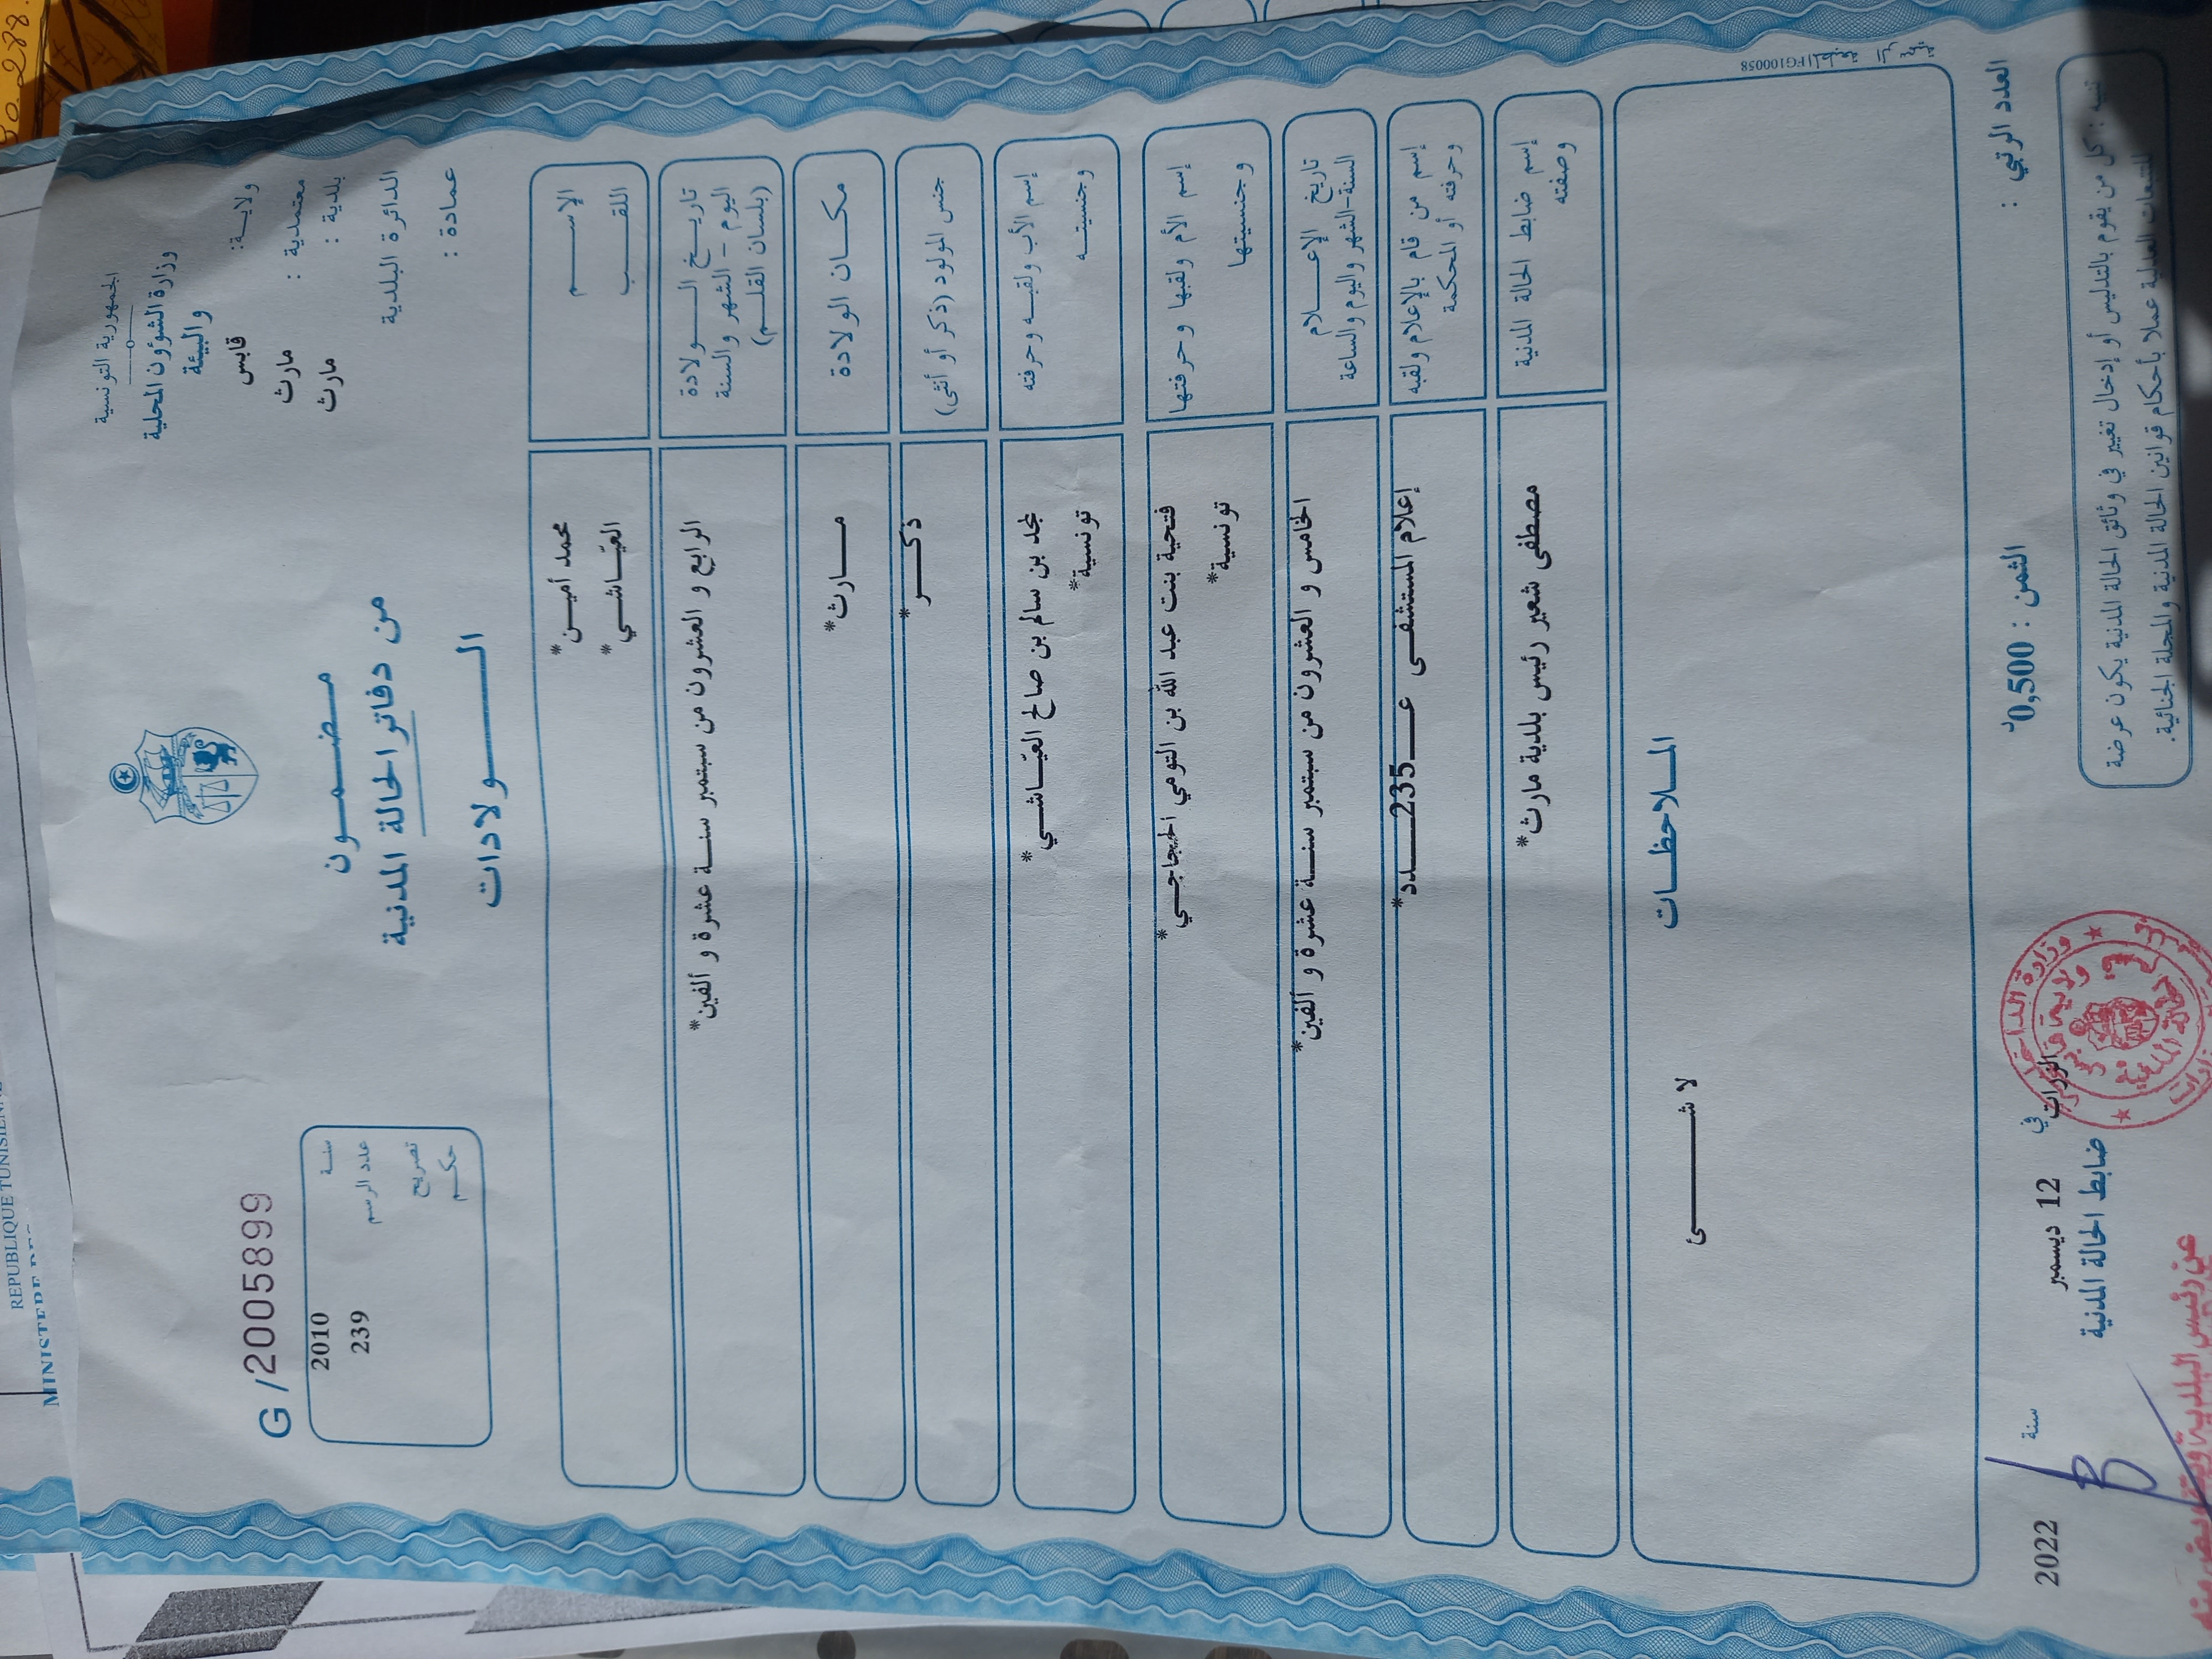 الجمهورية التونسية
وزارة الشؤون المحلية
والبيئة
ولاية: قابس
معتمدية : مارث
بلدية : مارث
الدائرة البلدية
عمادة :
مضمون
من دفاتر الحالة المدنية
الولادات
G / 2005899
سنة 2010
عدد الرسم 239
تصريح
حكم
الإسم محمد أمين*
اللقب العيّاشي*
تاريخ الولادة
اليوم - الشهر والسنة
(بلسان القلم)
الرابع و العشرون من سبتمبر سنة عشرة و ألفين*
مكان الولادة مارث*
جنس المولود (ذكر أو أنثى) ذكر*
إسم الأب ولقبه وحرفته بن سالم بن صالح العيّاشي*
وجنسيته تونسية*
إسم الأم ولقبها وحرفتها فتحية بنت عبد الله بن التومي الحجاجي*
وجنسيتها تونسية*
تاريخ الإعلام
السنة-الشهر واليوم والساعة
الخامس و العشرون من سبتمبر سنة عشرة و ألفين*
إسم من قام بالإعلام ولقبه
وحرفته أو المحكمة
إعلام المستشفى عـ235ـدد*
إسم ضابط الحالة المدنية
وصفته
مصطفى شعير رئيس بلدية مارث*
الملاحظات
لا شئ
FG100058
العدد الرتبي :
الثمن : 0,500د
في الزرات 12 ديسمبر سنة 2022
ضابط الحالة المدنية
تنبيه : كل من يقوم بالتدليس أو إدخال تغيير في وثائق الحالة المدنية يكون عرضة
للتتبعات العدلية عملا بأحكام قوانين الحالة المدنية والمجلة الجنائية.
وزارة الداخلية
ولاية قابس
عن رئيس البلدية وبتفويض منه
REPUBLIQUE TUNISIENNE